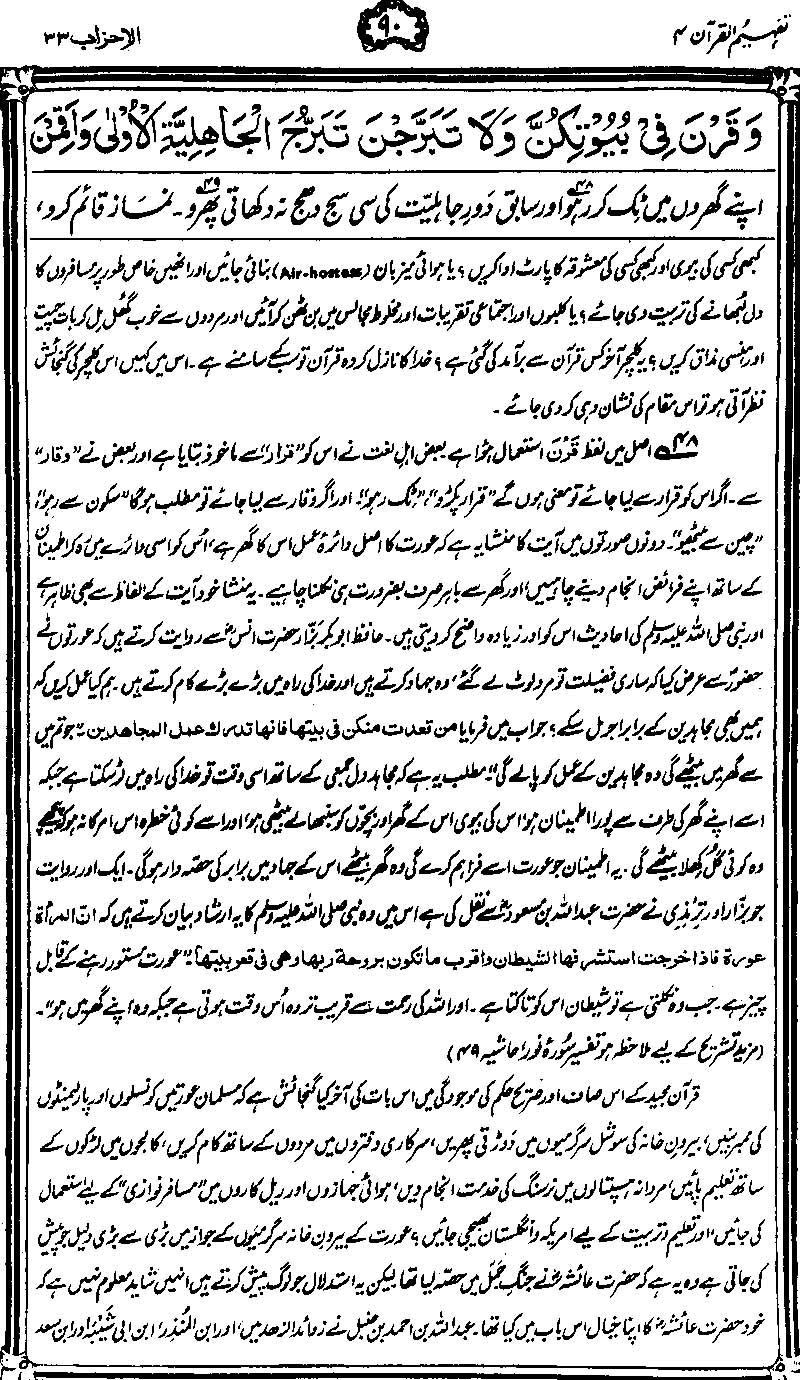 تفہیم القرآن ۴
۹۰
الاحزاب ۳۳
وَقَرْنَ فِیْ بُیُوْتِکُنَّ وَلَا تَبَرَّجْنَ تَبَرُّجَ الْجَاهِلِیَّةِ الْاُوْلٰی وَاَقِمْنَ
اپنے گھروں میں ٹِک کر رہو۴۸ اور سابق دَورِ جاہلیّت کی سی سج دھج نہ دکھاتی پھرو۴۹۔ نماز قائم کرو،
کبھی کسی کی بیوی اور کبھی کسی کی معشوقہ کا پارٹ ادا کریں؟ یا ہوائی میزبان (Air-hostess) بنائی جائیں اور انھیں خاص طور پر مسافروں کا
دل لُبھانے کی تربیت دی جائے؟ یا کلبوں اور اجتماعی تقریبات اور مخلوط مجالس میں بن ٹھن کر آئیں اور مردوں سے خوب گھُل مِل کر بات چیت
اور ہنسی مذاق کریں؟ یہ کلچر آخر کس قرآن سے برآمد کی گئی ہے؟ خدا کا نازل کردہ قرآن تو سب کے سامنے ہے۔ اس میں کہیں اس کلچر کی گنجائش
نظر آتی ہو تو اس مقام کی نشان دہی کر دی جائے۔
۴۸ اصل میں لفظ قَرْنَ استعمال ہوا ہے بعض اہلِ لغت نے اس کو ”قرار“ سے ماخوذ بتایا ہے اور بعض نے ”وقار“
سے۔ اگر اس کو قرار سے لیا جائے تو معنی ہوں گے ”قرار پکڑو“، ”ٹِک رہو“۔ اور اگر وقار سے لیا جائے تو مطلب ہوگا ”سکون سے رہو“،
”چین سے بیٹھو“۔ دونوں صورتوں میں آیت کا منشا یہ ہے کہ عورت کا اصل دائرۂ عمل اس کا گھر ہے، اُس کو اسی دائرے میں رہ کر اطمینان
کے ساتھ اپنے فرائض انجام دینے چاہییں، اور گھر سے باہر صرف بضرورت ہی نکلنا چاہیے۔ یہ منشا خود آیت کے الفاظ سے بھی ظاہر ہے
اور نبی صلی اللہ علیہ وسلم کی احادیث اس کو اور زیادہ واضح کر دیتی ہیں۔ حافظ ابوبکر بزّار حضرت انسؓ سے روایت کرتے ہیں کہ عورتوں نے
حضورؐ سے عرض کیا کہ ساری فضیلت تو مرد لوٹ لے گئے، وہ جہاد کرتے ہیں اور خدا کی راہ میں بڑے بڑے کام کرتے ہیں۔ ہم کیا عمل کریں کہ
ہمیں بھی مجاہدین کے برابر اجر مل سکے؟ جواب میں فرمایا من قعدت منکن فی بیتھا فانھا تدرک عمل المجاھدین۔ ”جو تم میں
سے گھر میں بیٹھے گی وہ مجاہدین کے عمل کو پالے گی“۔ مطلب یہ ہے کہ مجاہد دل جمعی کے ساتھ اسی وقت تو خدا کی راہ میں لڑ سکتا ہے جبکہ
اسے اپنے گھر کی طرف سے پورا اطمینان ہو، اس کی بیوی اس کے گھر اور بچوں کو سنبھالے بیٹھی ہو، اور اسے کوئی خطرہ اس امر کا نہ ہو کہ پیچھے
وہ کوئی گُل کھلا بیٹھے گی۔ یہ اطمینان جو عورت اسے فراہم کرے گی وہ گھر بیٹھے اس کے جہاد میں برابر کی حصّہ دار ہوگی۔ ایک اور روایت
جو بزّار اور ترمذی نے حضرت عبداللہ بن مسعودؓ سے نقل کی ہے اس میں وہ نبی صلی اللہ علیہ وسلم کا یہ ارشاد بیان کرتے ہیں کہ ان المرأة
عورة فاذا خرجت استشرفھا الشیطان واقرب ما تکون بروحة ربھا وھی فی قعر بیتھا۔ ”عورت مستور رہنے کے قابل
چیز ہے۔ جب وہ نکلتی ہے تو شیطان اس کو تاکتا ہے۔ اور اللہ کی رحمت سے قریب تر وہ اُس وقت ہوتی ہے جبکہ وہ اپنے گھر میں ہو“۔
(مزید تشریح کے لیے ملاحظہ ہو تفسیر سُورۂ نور، حاشیہ ۴۹)
قرآن مجید کے اس صاف اور صریح حکم کی موجودگی میں اس بات کی آخر کیا گنجائش ہے کہ مسلمان عورتیں کونسلوں اور پارلیمنٹوں
کی ممبر بنیں، بیرونِ خانہ کی سوشل سرگرمیوں میں دَوڑتی پھریں، سرکاری دفتروں میں مردوں کے ساتھ کام کریں، کالجوں میں لڑکوں کے
ساتھ تعلیم پائیں، مردانہ ہسپتالوں میں نرسنگ کی خدمت انجام دیں، ہوائی جہازوں اور ریل کاروں میں ”مسافر نوازی“ کے لیے استعمال
کی جائیں، اور تعلیم و تربیت کے لیے امریکہ و انگلستان بھیجی جائیں؟ عورت کے بیرونِ خانہ سرگرمیوں کے جواز میں بڑی سے بڑی دلیل جو پیش
کی جاتی ہے وہ یہ ہے کہ حضرت عائشہؓ نے جنگِ جَمَل میں حصّہ لیا تھا لیکن یہ استدلال جو لوگ پیش کرتے ہیں انہیں شاید معلوم نہیں ہے کہ
خود حضرت عائشہؓ کا اپنا خیال اس باب میں کیا تھا۔ عبداللہ بن احمد بن حنبل نے زوائد الزھد میں، اور ابن المُنذِر، ابن ابی شَیْبَہ، اور ابن سعد